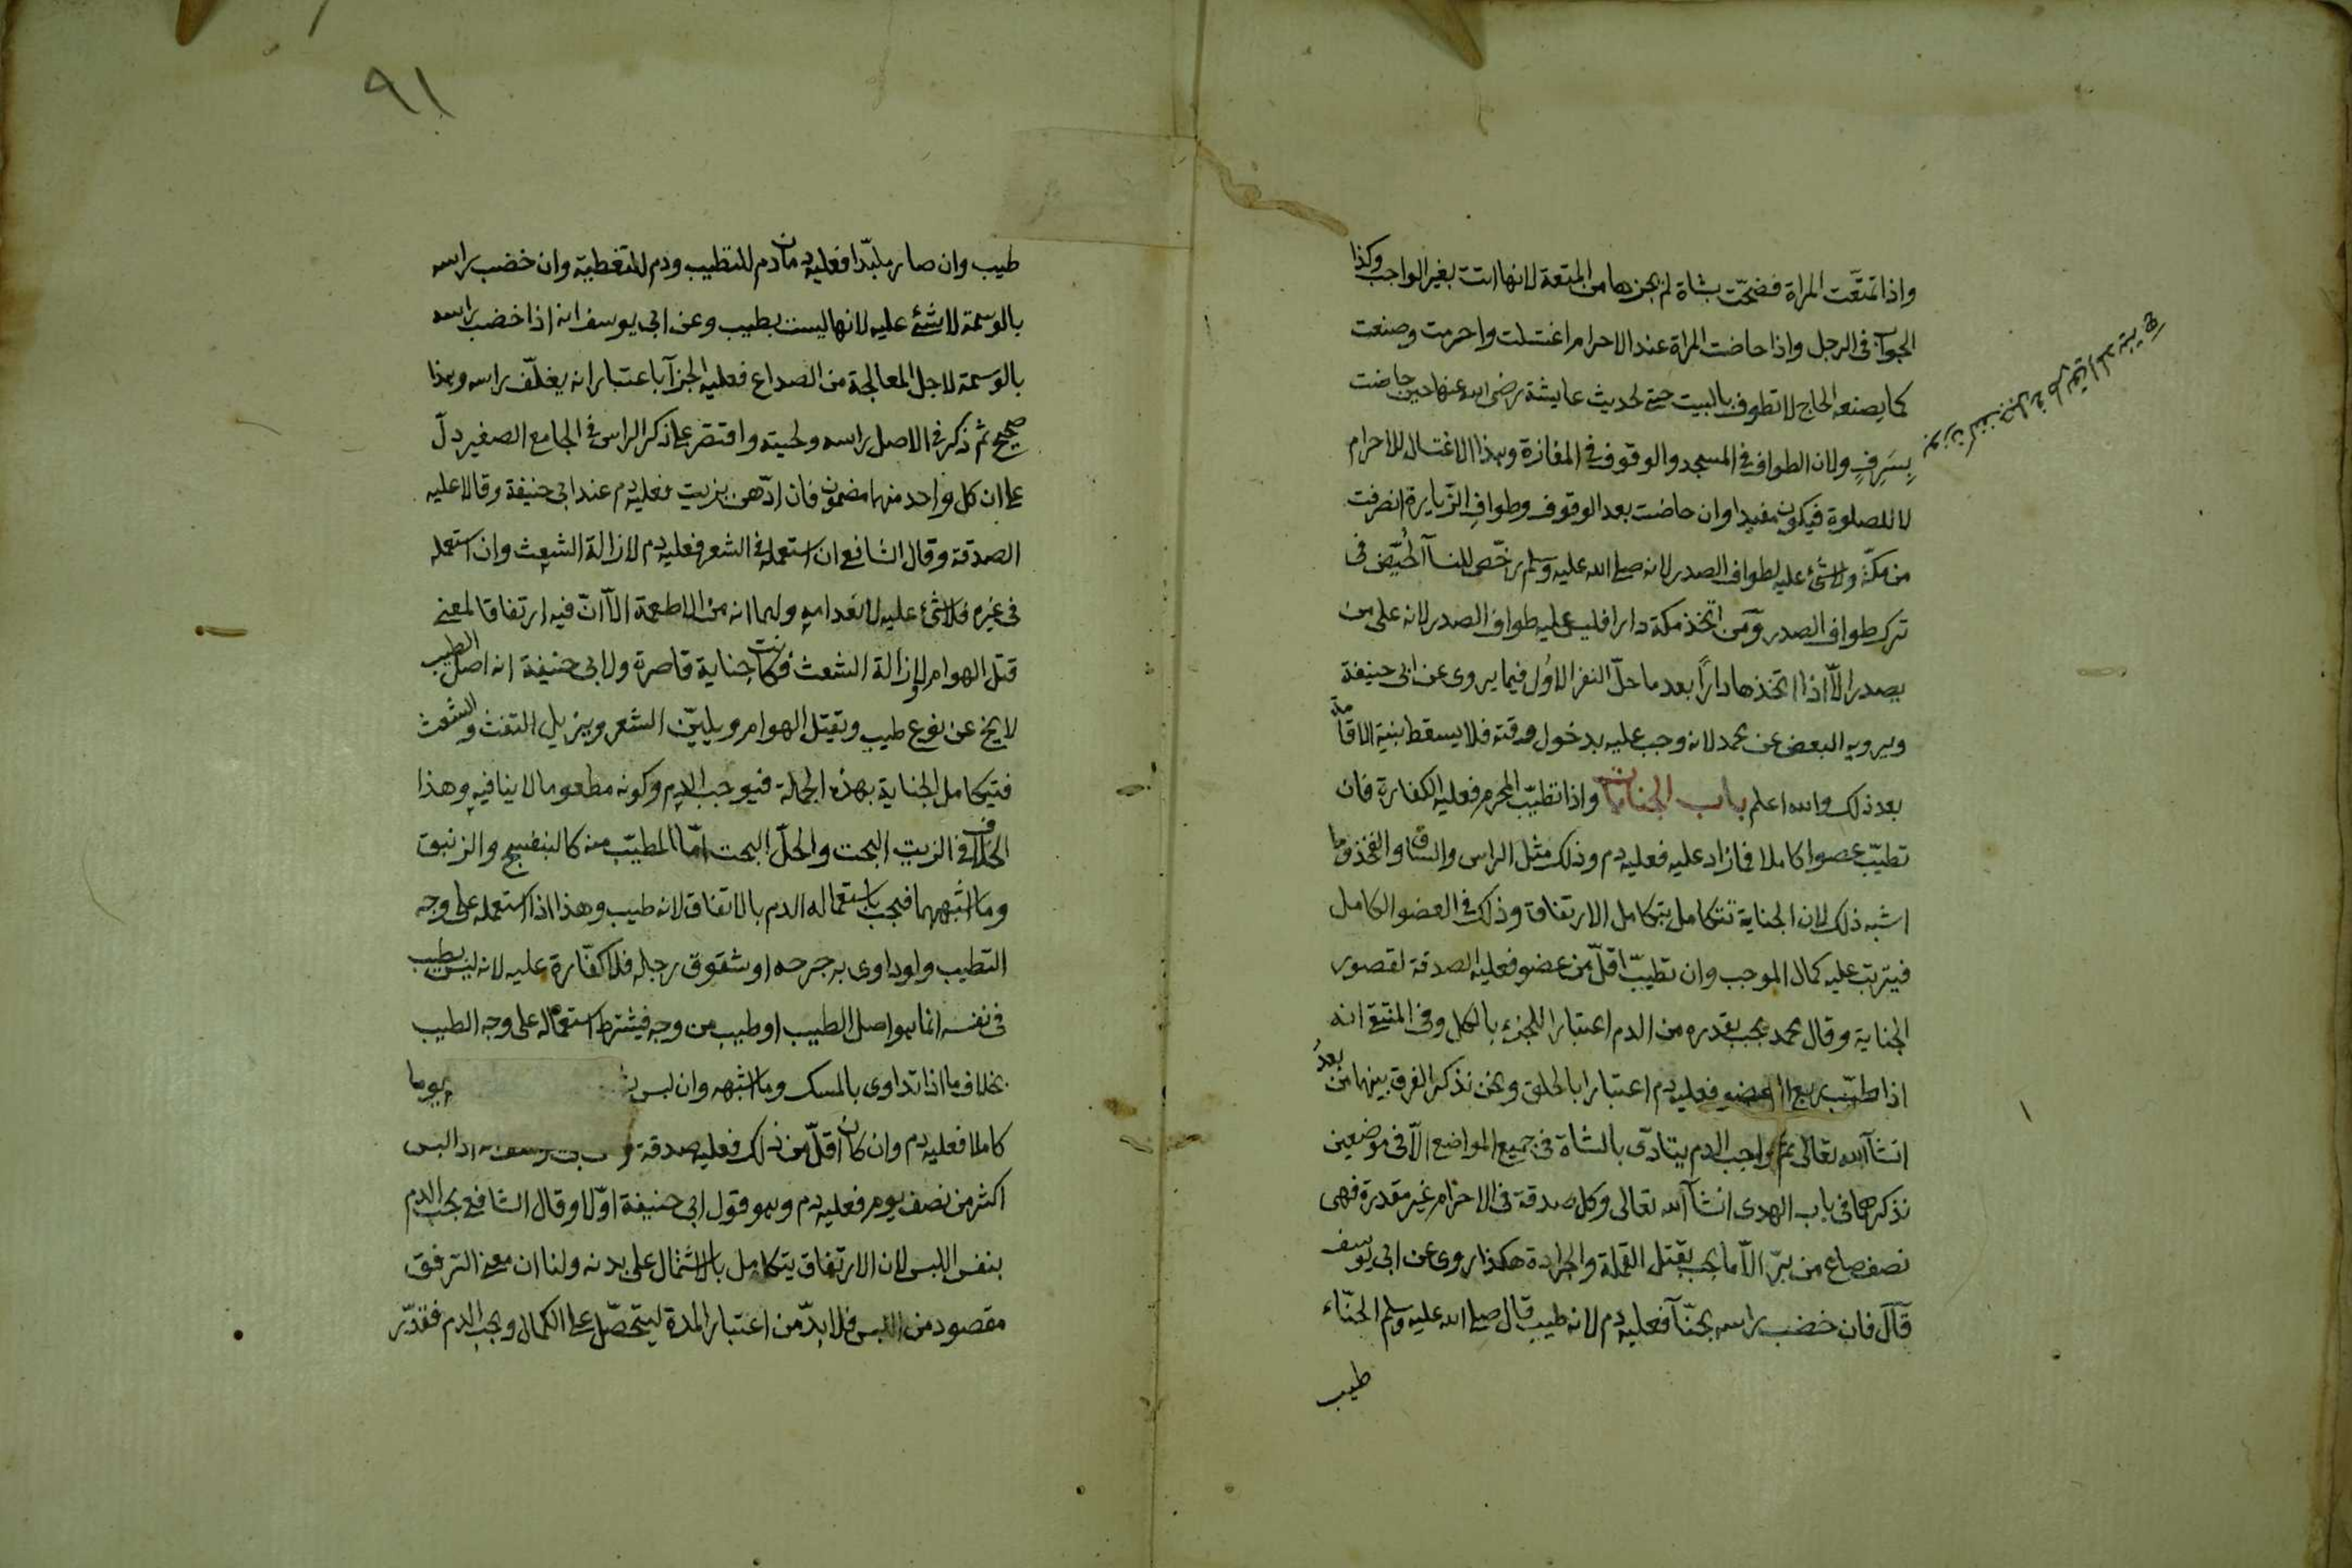 واذا تمتعت المراة فضحّت بشاة لم يجزها من المتعة لانها اتت بغير الواجب وكذا
الجواب فى الرجل واذا حاضت المراة عند الاحرام اغتسلت واحرمت وصنعت
كما يصنعه الحاج لا تطوف بالبيت حتى لحديث عايشة رضى الله عنها حين حاضت
بِسَرِفٍ ولان الطواف فى المسجد والوقوف فى المفازة وهذا الاغتسال للاحرام
لا للصلوة فيكون مفيدا وان حاضت بعد الوقوف وطواف الزيارة انصرفت
من مكة ولا شئ عليه لطواف الصدر لانه صلى الله عليه وسلم رخّص للنسآ الحُيَّض فى
ترك طواف الصدر ومن اتخذ مكة دارا فليس عليه طواف الصدر لانه على من
يصدر الّا اذا اتخذها دارًا بعد ما حلّ النفر الاول فيما يروى عن ابى حنيفة
ويرويه البعض عن محمد لانه وجب عليه بدخول وقته فلا يسقط بنية الاقامة
بعد ذلك والله اعلم باب الجنايات واذا تطيّب المحرم فعليه الكفارة فان
تطيّب عضوا كاملا فما زاد عليه فعليه دم وذلك مثل الراس والساق والفخذ وما
اشبه ذلك لان الجناية تتكامل بتكامل الارتفاق وذلك فى العضو الكامل
فيترتب عليه كمال الموجب وان تطيّب اقلّ من عضو فعليه الصدقة لقصور
الجناية وقال محمد يجب بقدره من الدم اعتبارا للجزء بالكل وفى المنتقى انه
اذا طيّب ربع العضو فعليه دم اعتبارا بالحلق ونحن نذكر الفرق بينهما من بعدُ
انشآ الله تعالى ثم واجب الدم يتادّى بالشاة فى جميع المواضع الّا فى موضعين
نذكرهما فى باب الهدى انشآ الله تعالى وكل صدقة فى الاحرام غير مقدرة فهى
نصف صاع من برّ الّا ما يجب بقتل القملة والجرادة هكذا روى عن ابى يوسف
قآل فان خضب راسه بحنّآ فعليه دم لانه طيب قال صلى الله عليه وسلم الحنّاء
طيب
٩١
طيب وان صار ملبّدا فعليه دمان دم للتطيب ودم للتغطية وان خضب راسه
بالوسمة لا شئ عليه لانها ليست بطيب وعن ابى يوسف انه اذا خضب راسه
بالوسمة لاجل المعالجة من الصداع فعليه الجزآ باعتبار انه يغلّف راسه وهذا
صحيح ثم ذكر فى الاصل راسه ولحيته واقتصر على ذكر الراس فى الجامع الصغير دلّ
على ان كل واحد منهما مضمون فان ادّهن بزيت فعليه دم عند ابى حنيفة وقالا عليه
الصدقة وقال الشافعى ان استعمله فى الشعر فعليه دم لازالة الشعث وان استعمله
فى غيره فلا شئ عليه لانعدامه ولهما انه من الاطعمة الّا انّ فيه ارتفاقا لمعنى
قتل الهوام وازالة الشعث فكانت جناية قاصرة ولابى حنيفة انه اصل الطيب
لا يخ عن نوع طيب ويقتل الهوام ويليّن الشعر ويزيل التفث والشعث
فتتكامل الجناية بهذه الجملة فيوجب الدم وكونه مطعوما لا ينافيه وهذا
الخلاف فى الزيت البحت والحلّ البحت امّا المطيّب منه كالبنفسج والزنبق
وما اشبههما فيجب باستعماله الدم بالاتفاق لانه طيب وهذا اذا استعمله على وجه
التطيب ولو داوى به جرحه او شقوق رجله فلا كفّارة عليه لانه ليس بطيب
فى نفسه انما هو اصل الطيب او طيب من وجه فيشترط استعماله على وجه الطيب
بخلاف ما اذا تداوى بالمسك وما اشبهه وان لبس يوما
كاملا فعليه دم وان كان اقلّ من ذلك فعليه صدقة اذا لبس
اكثر من نصف يوم فعليه دم وهو قول ابى حنيفة اوّلا وقال الشافعى يجب الدم
بنفس اللبس لان الارتفاق يتكامل بالاشتمال على بدنه ولنا ان معنى الترفق
مقصود من اللبس فلا بدّ من اعتبار المدة ليتحصّل على الكمال ويجب الدم فقدّر